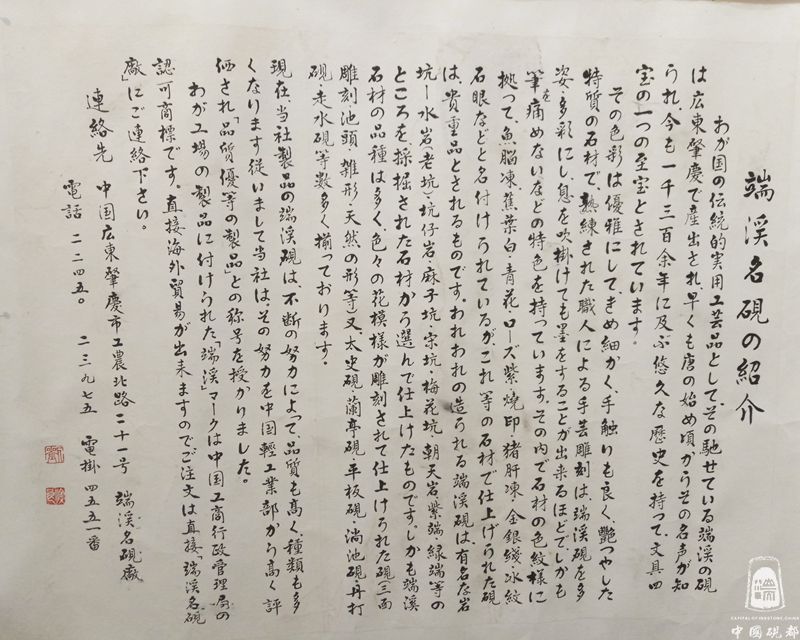 端渓名硯の紹介
わが国の伝統的実用工芸品として、その馳せている端渓の硯
は広東肇慶で産出され早くも唐の始め頃からその名声が知
られ、今も一千三百余年に及ぶ悠久な歴史を持って、文具四
宝の一つの至宝とされています。
その色彩は優雅にして、きめ細かく、手触りも良く、艶つやした
特質の石材で、熟練された職人による手芸雕刻は、端渓硯を多
姿・多彩にし、息を吹掛けても墨をすることが出来るほどで、しかも
筆を痛めないなどの特色を持っています。その内で石材の色紋様に
拠って、魚脳凍・蕉葉白・青花・ローズ紫・燒印・猪肝凍・金銀綫・氷紋
石眼などと名付けられているが、これ等の石材で仕上げられた硯
は、貴重品とされるものです。われわれの造られる端渓硯は、有名な岩
坑ー水岩(老坑)・坑仔岩・麻子坑・宋坑・梅花坑・朝天岩・紫端・緑端等の
ところを採掘された石材から選んで仕上けたものです。しかも端渓
石材の品種は多く、色々の花模様が雕刻されて仕上けられた硯(三面
雕刻池頭、雑形・天然の形等)又、太史硯・蘭亭硯・平板硯・淌池硯・舟打
硯・走水硯等数多く揃っております。
現在、当社製品の端渓硯は、不断の努力によって、品質も高く、種類も多
くなります従いまして当社は、その努力を中国輕工業部から高く評
価され「品質優等の製品との称号を授かりました。
わが工場の製品に付けられた「端渓」マークは中国工商行政管理局の
認可商標です。直接海外貿易が出来ますのでご注文は直接、「端渓名硯
廠」にご連絡下さい。
連絡先 中国広東肇慶市工農北路二十一号 端渓名硯廠
電話 二二四五。 二三九七五 電掛 四五五一番
CAPITAL OF INKSTONE, CHINA
中國硯都